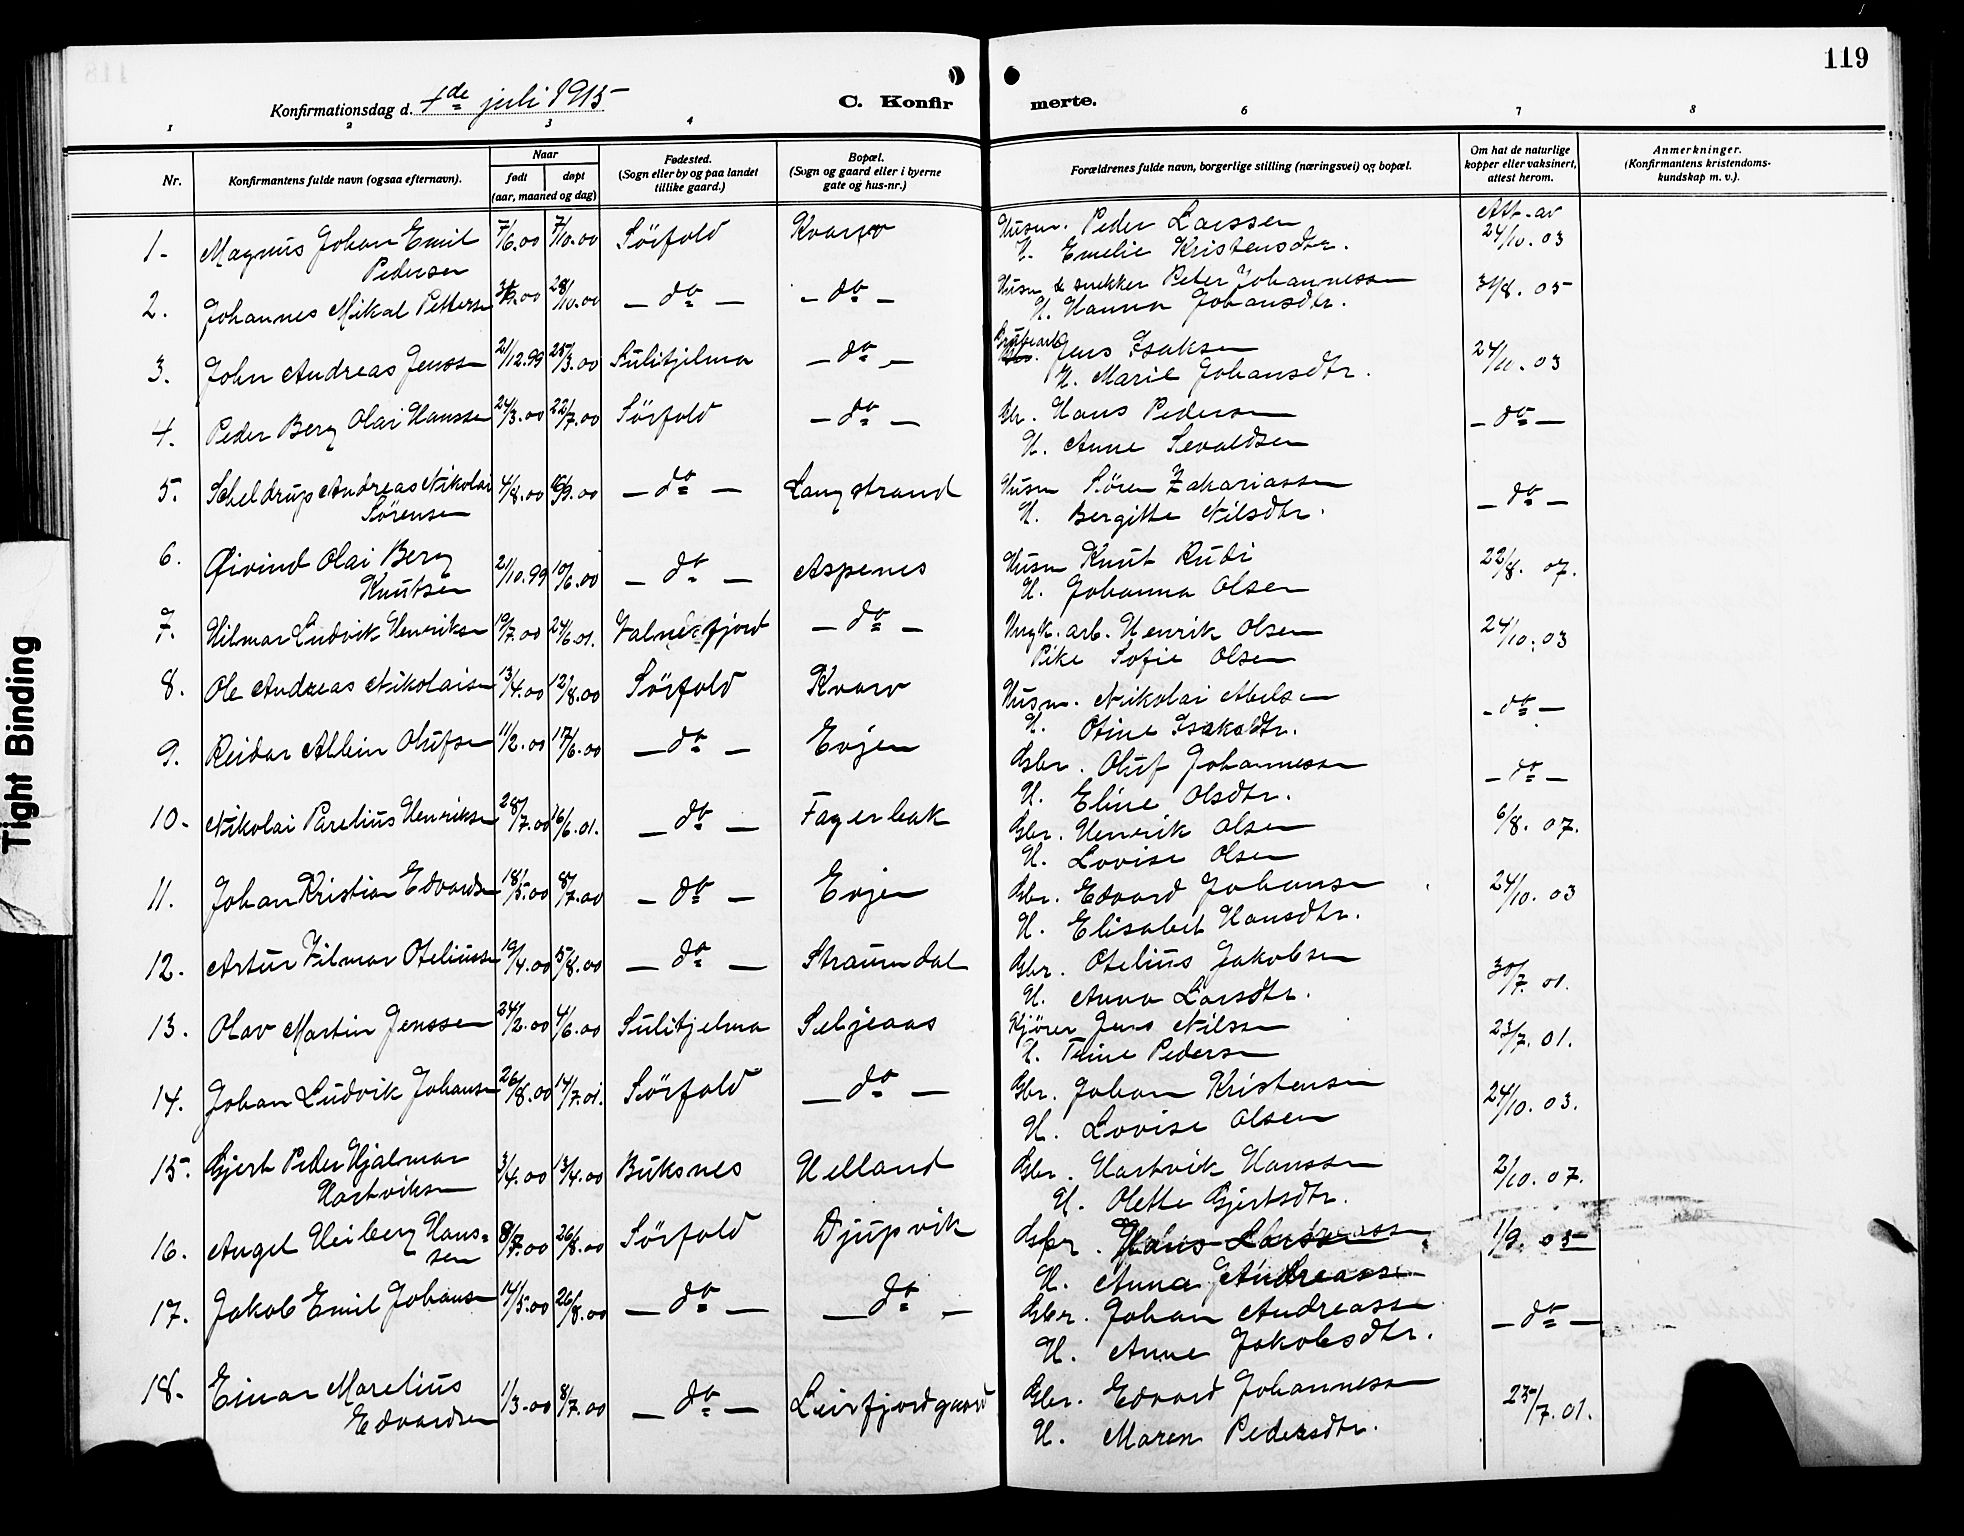 119
Konfirmationsdag d. 4de juli 1915
C. Konfirmerte.
1 2 3 4 6 7 8
Nr.
Konfirmantens fulde navn (ogsaa efternavn).
Naar
født døpt
(aar, maaned og dag)
Fødested.
(Sogn eller by og paa landet
tillike gaard.)
Bopæl.
(Sogn og gaard eller i byerne
gate og hus-nr.)
Forældrenes fulde navn, borgerlige stilling (næringsvei) og bopæl.
Om hat de naturlige
kopper eller vaksinert,
attest herom.
Anmerkninger.
(Konfirmantens kristendoms-
kundskap m. v.).
1. Magnus Johan Emil 7/6.00 7/10.00 Sörfold Kvarv Husm. Peder Larssen Att. av
Pedersen H. Emelie Kristensdtr. 24/10.03
2. Johannes Mikal Pettersen 28/10.00 - do - - do - Husm & snekker Peter Johannessen 31/8.05
H. Hanna Johansdtr.
3. John Andreas Jenssen 21/12.99 25/3.00 Sulitjelma - do - Grubearb. Jens Isaksen 24/10.03
H. Marie Johansdtr.
4. Peder Berg Olai Hanssen 24/3.00 22/7.00 Sörfold - do - Gbr. Hans Pedersen - do -
H. Anne Sevaldsen
5. Scheldrup Andreas Nikolai 4/8.00 - do - Langstrand Husm Søren Zakariassen - do -
Sørensen H. Bergitte Nilsdtr.
6. Øivind Olai Berg 21/10.99 10/6.00 - do - Aspenes Husm Knut Rudi 22/8.07.
Knutsen H. Johanna Olsen
7. Hilmar Ludvik Henriksen 19/7.00 24/6.01. Valnesfjord - do - Ungk. arb. Henrik Olsen 24/10.03
Pike Sofie Olsen
8. Ole Andreas Nikolaisen 13/4.00 12/8.00 Sörfold Kvarv Husm. Nikolai Abelsen - do -
H. Otine Isaksdtr.
9. Reidar Albin Olufsen 11/2.00 17/6.00 - do - Evjen Gbr. Oluf Johannessen - do -
H. Eline Olsdtr.
10. Nikolai Parelius Henriksen 28/7.00 16/6.01. - do - Fagerbak Gbr. Henrik Olsen 6/8.07.
H. Lovise Olsen
11. Johan Kristian Edvardsen 18/5.00 8/7.00 - do - Evjen Gbr. Edvard Johansen 24/10.03
H. Elisabet Hansdtr.
12. Artur Vilmar Oteliussen 19/4.00 5/8.00 - do - Straumdal Gbr. Otelius Jakobsen 30/7.01.
H. Anna Larsdtr.
13. Olav Martin Jenssen 24/2.00 4/6.00 Sulitjelma Seljeaas Kjører Jens Nilssen 23/7.01.
H. Trine Pedersen
14. Johan Ludvik Johansen 26/8.00 14/7.01. Sörfold - do - Gbr. Johan Kristensen 24/10.03.
H. Lovise Olsen
15. Gjert Peder Hjalmar 3/4.00 13/4.00 Buksnes Helland Gbr. Hartvik Hanssen 2/10.07.
Hartviksen H. Olette Gjertsdtr.
16. Angel Heiberg Hans- 8/7.00 26/8.00 Sörfold Djupvik Gbr. Hans 1/9.05
sen H. Anna Andreassen
17. Jakob Emil Johansen 14/5.00 26/8.00 - do - - do - Gbr. Johan Andreassen - do -
H. Anne Jakobsdtr.
18. Einar Marelius 1/3.00 8/7.00 - do - Leirfjordgaard Gbr. Edvard Johannessen 23/7.01.
Edvardsen H. Maren Pedersdtr.
Tight Binding